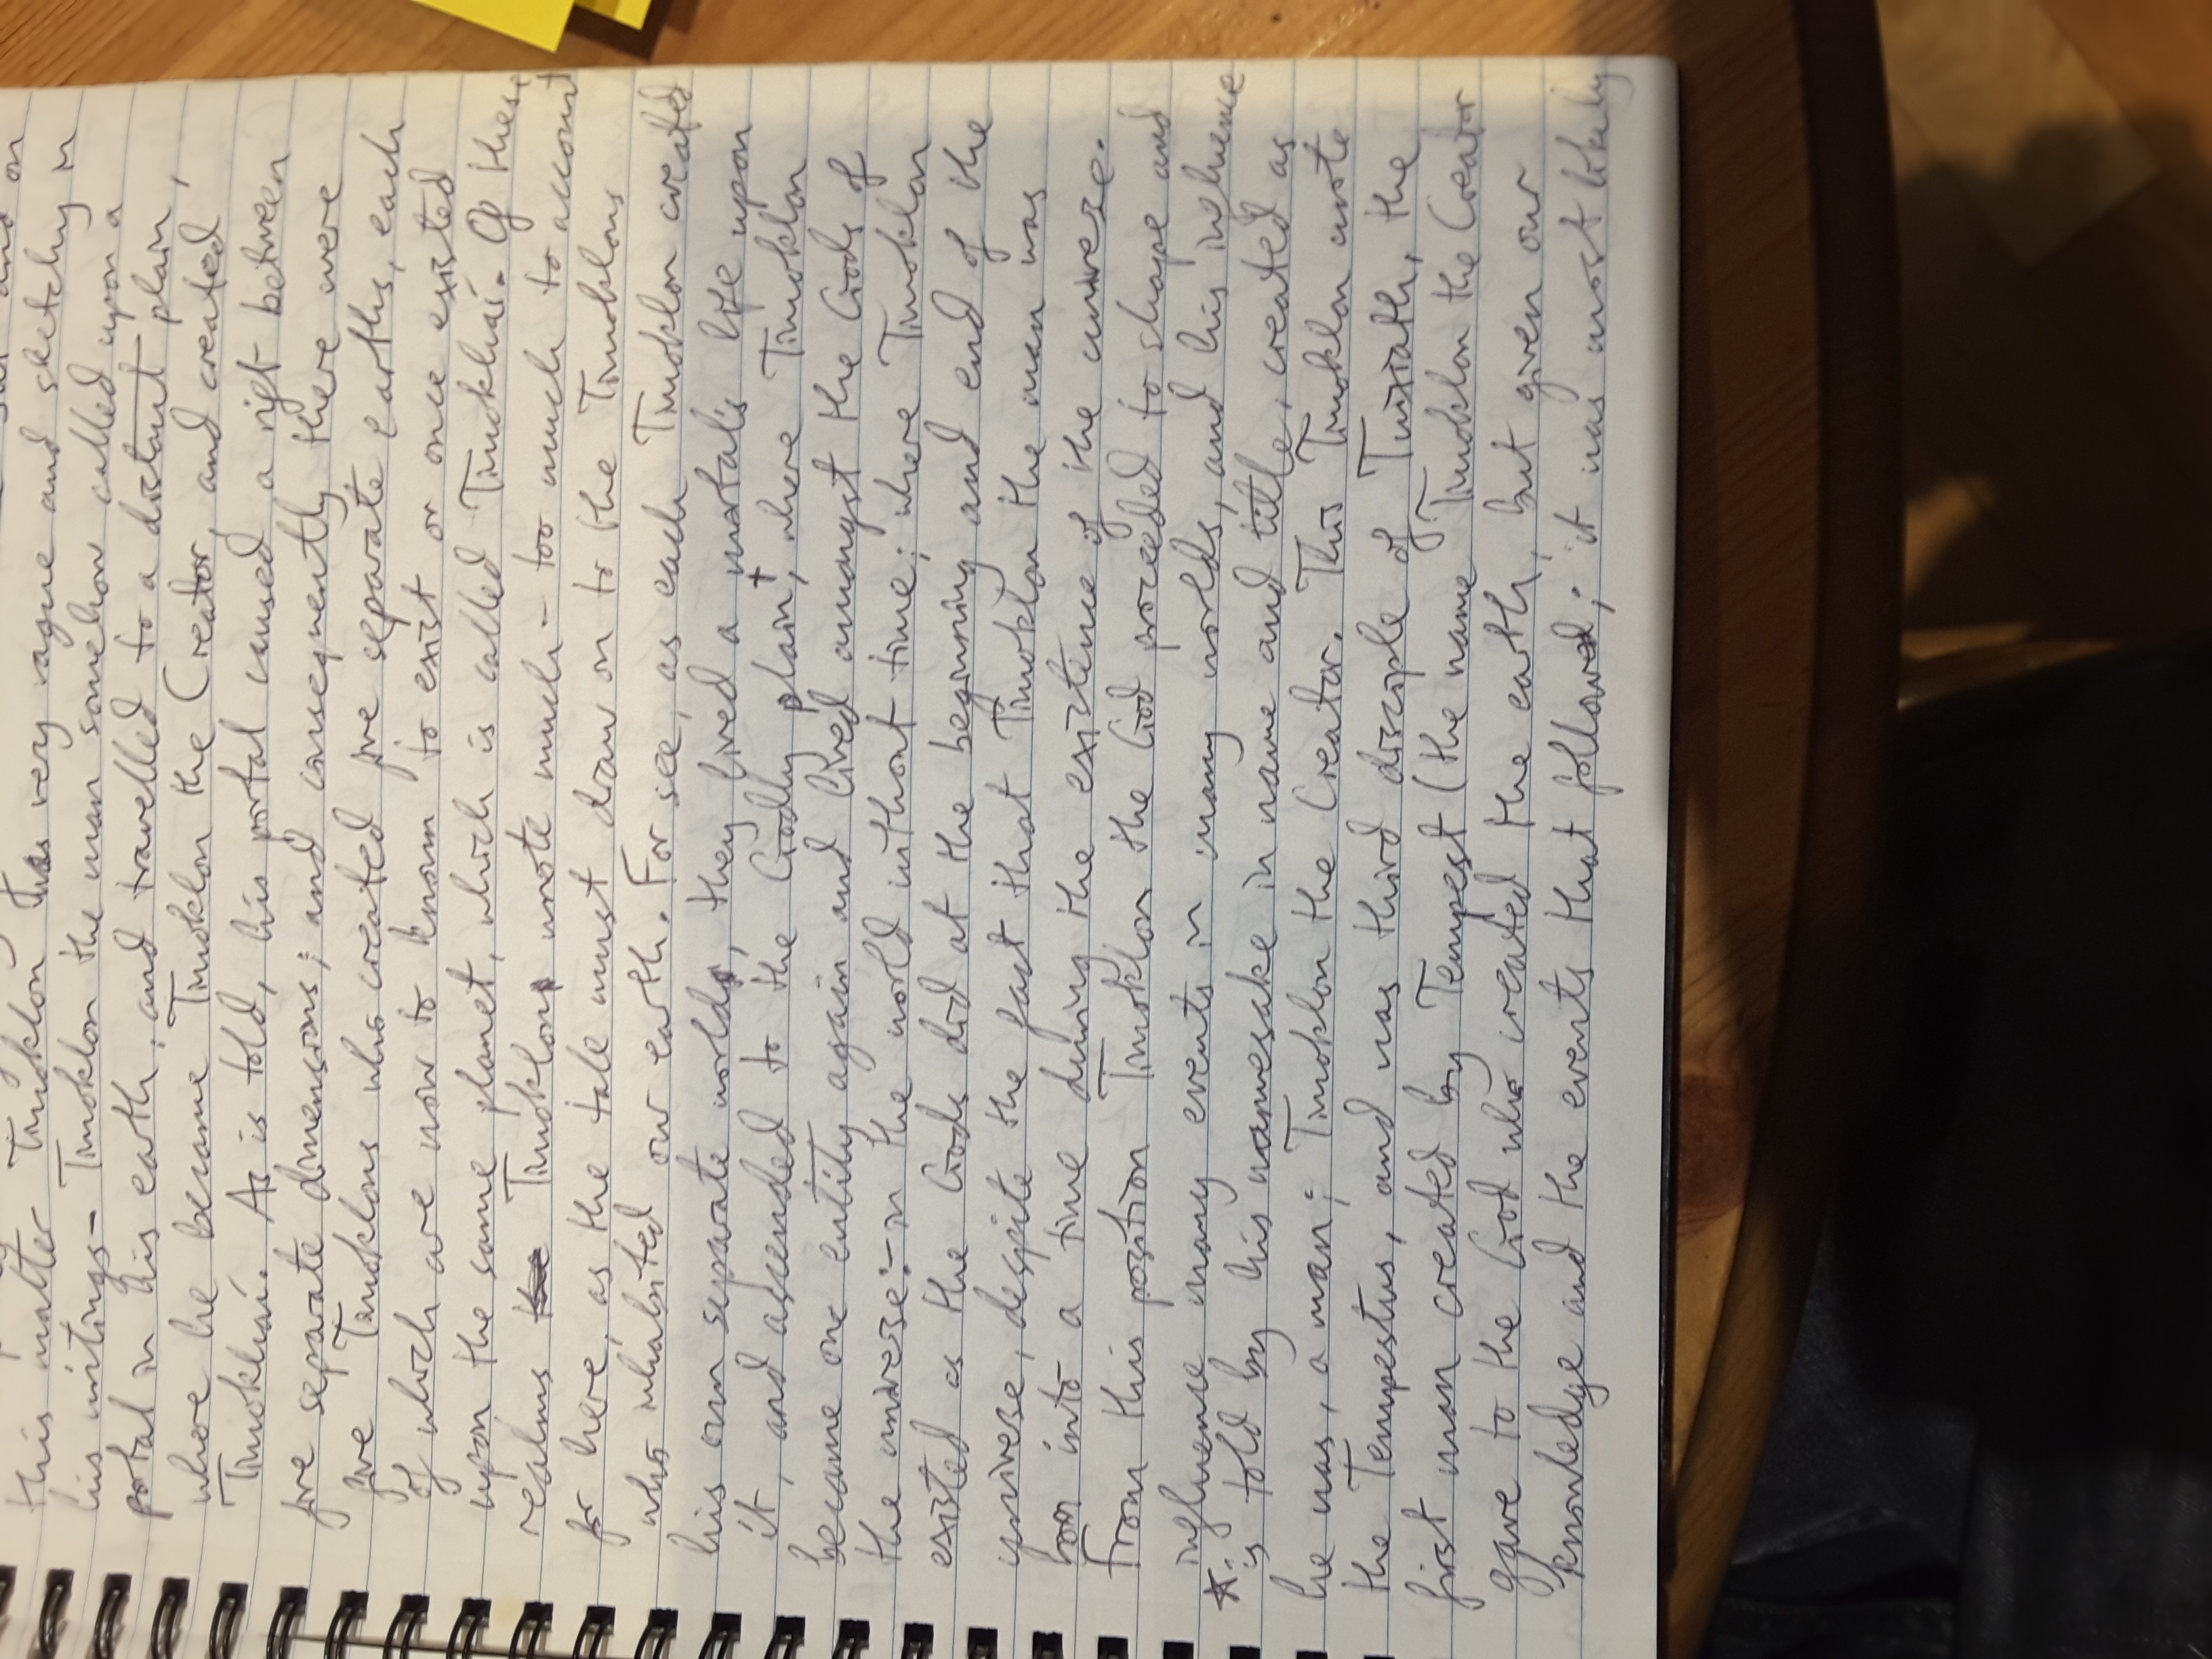 and on
this matter Timoklon was very vague and sketchy in
his writings - Timoklon the man somehow called upon a
portal in his earth, and travelled to a distant plain,
where he became Timoklon the Creator, and created
Timokhaí. As is told, his portal caused a rift between
five separate dimensions; and consequently there were
five Timoklons who created five separate earths, each
of which are now to known to exist or once existed
upon the same planet, which is called Timokhaí. Of these
realms the Timoklons wrote much - too much to account
for here, as the tale must draw on to the Timoklons
who inhabited our earth. For see, as each Timoklon created
his own separate worlds, they lived a mortal's life upon
it, and ascended to the Godly plain†, where Timoklon
became one entity again and lived amongst the Gods of
the universe:- in the world without time; where Timoklon
existed as the Gods did at the beginning and end of the
universe, despite the fact that Timoklon the man was
born into a time during the existence of the universe.
From this position Timoklon the God proceeded to shape and
influence many events in many worlds, and his influence
*is told by his namesake in name and title, created as
he was, a man; Timoklon the Creator. This Timoklon wrote
the Tempestus, and was third disciple of Tuixiath, the
first man created by Tempest (the name Timoklon the Creator
gave to the God who created the earth, but given our
knowledge and the events that followed; it was most likely